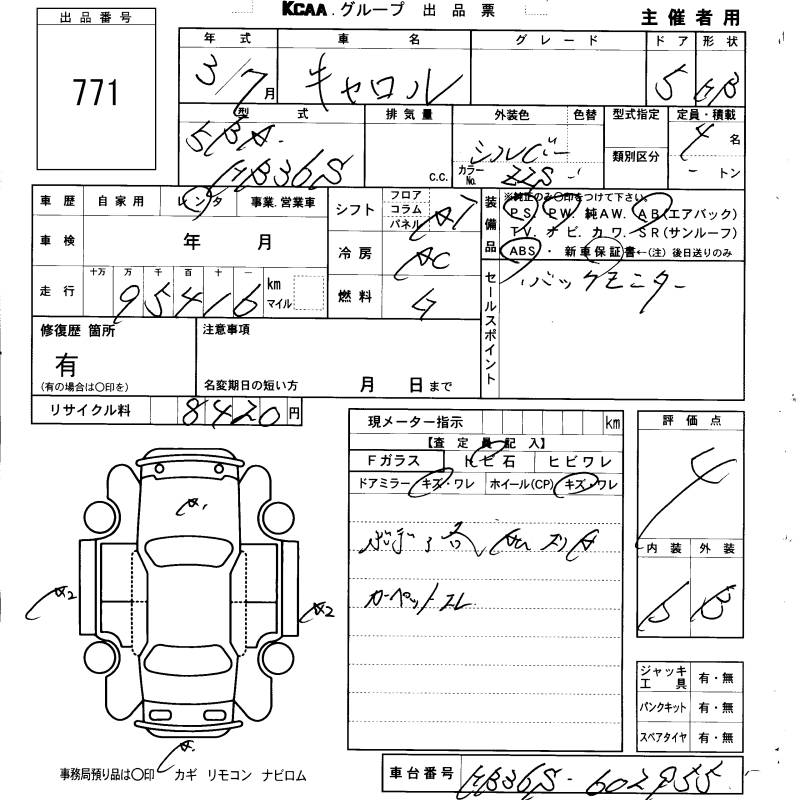 KCAA.グループ 出品票
主催者用
出品番号
771
年式 車名 グレード ドア 形状
3/7月 キャロル 5 HB
型式 排気量 外装色 色替 型式指定 定員・積載
5BA- シルバー 4名
HB36S c.c. カラーNo. Z2S - 類別区分 - トン
車歴 自家用 レンタ 事業.営業車
シフト フロア コラム パネル AT
装備品 ※純正のみ〇印をつけて下さい。
PS. PW. 純AW. AB(エアバック)
TV. ナビ. カワ. SR(サンルーフ)
ABS・ 新車保証書←(注)後日送りのみ
車検 年 月
冷房 AC
走行 十万 万 千 百 十 一
95416 km マイル
燃料 G
セールスポイント
バックモニター
修復歴 箇所
有
(有の場合は〇印を)
注意事項
名変期日の短い方 月 日まで
リサイクル料 8420円
現メーター指示 km
【査定員記入】
Fガラス トビ石 ヒビワレ
ドアミラー キズ・ワレ ホイール(CP) キズ・ワレ
カーペットヨレ
評価点
4
内装 外装
B B
A1
A2 A2
A
ジャッキ工具 有・無
パンクキット 有・無
スペアタイヤ 有・無
事務局預り品は〇印 カギ リモコン ナビロム
車台番号 HB36S-602955